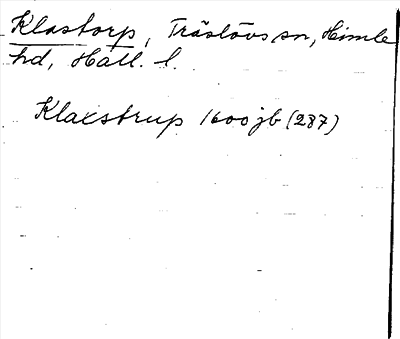 Klastorp, Träslövs sn, Himle
hd, Hall. l.
Klaxstrup 1600 jb (287)